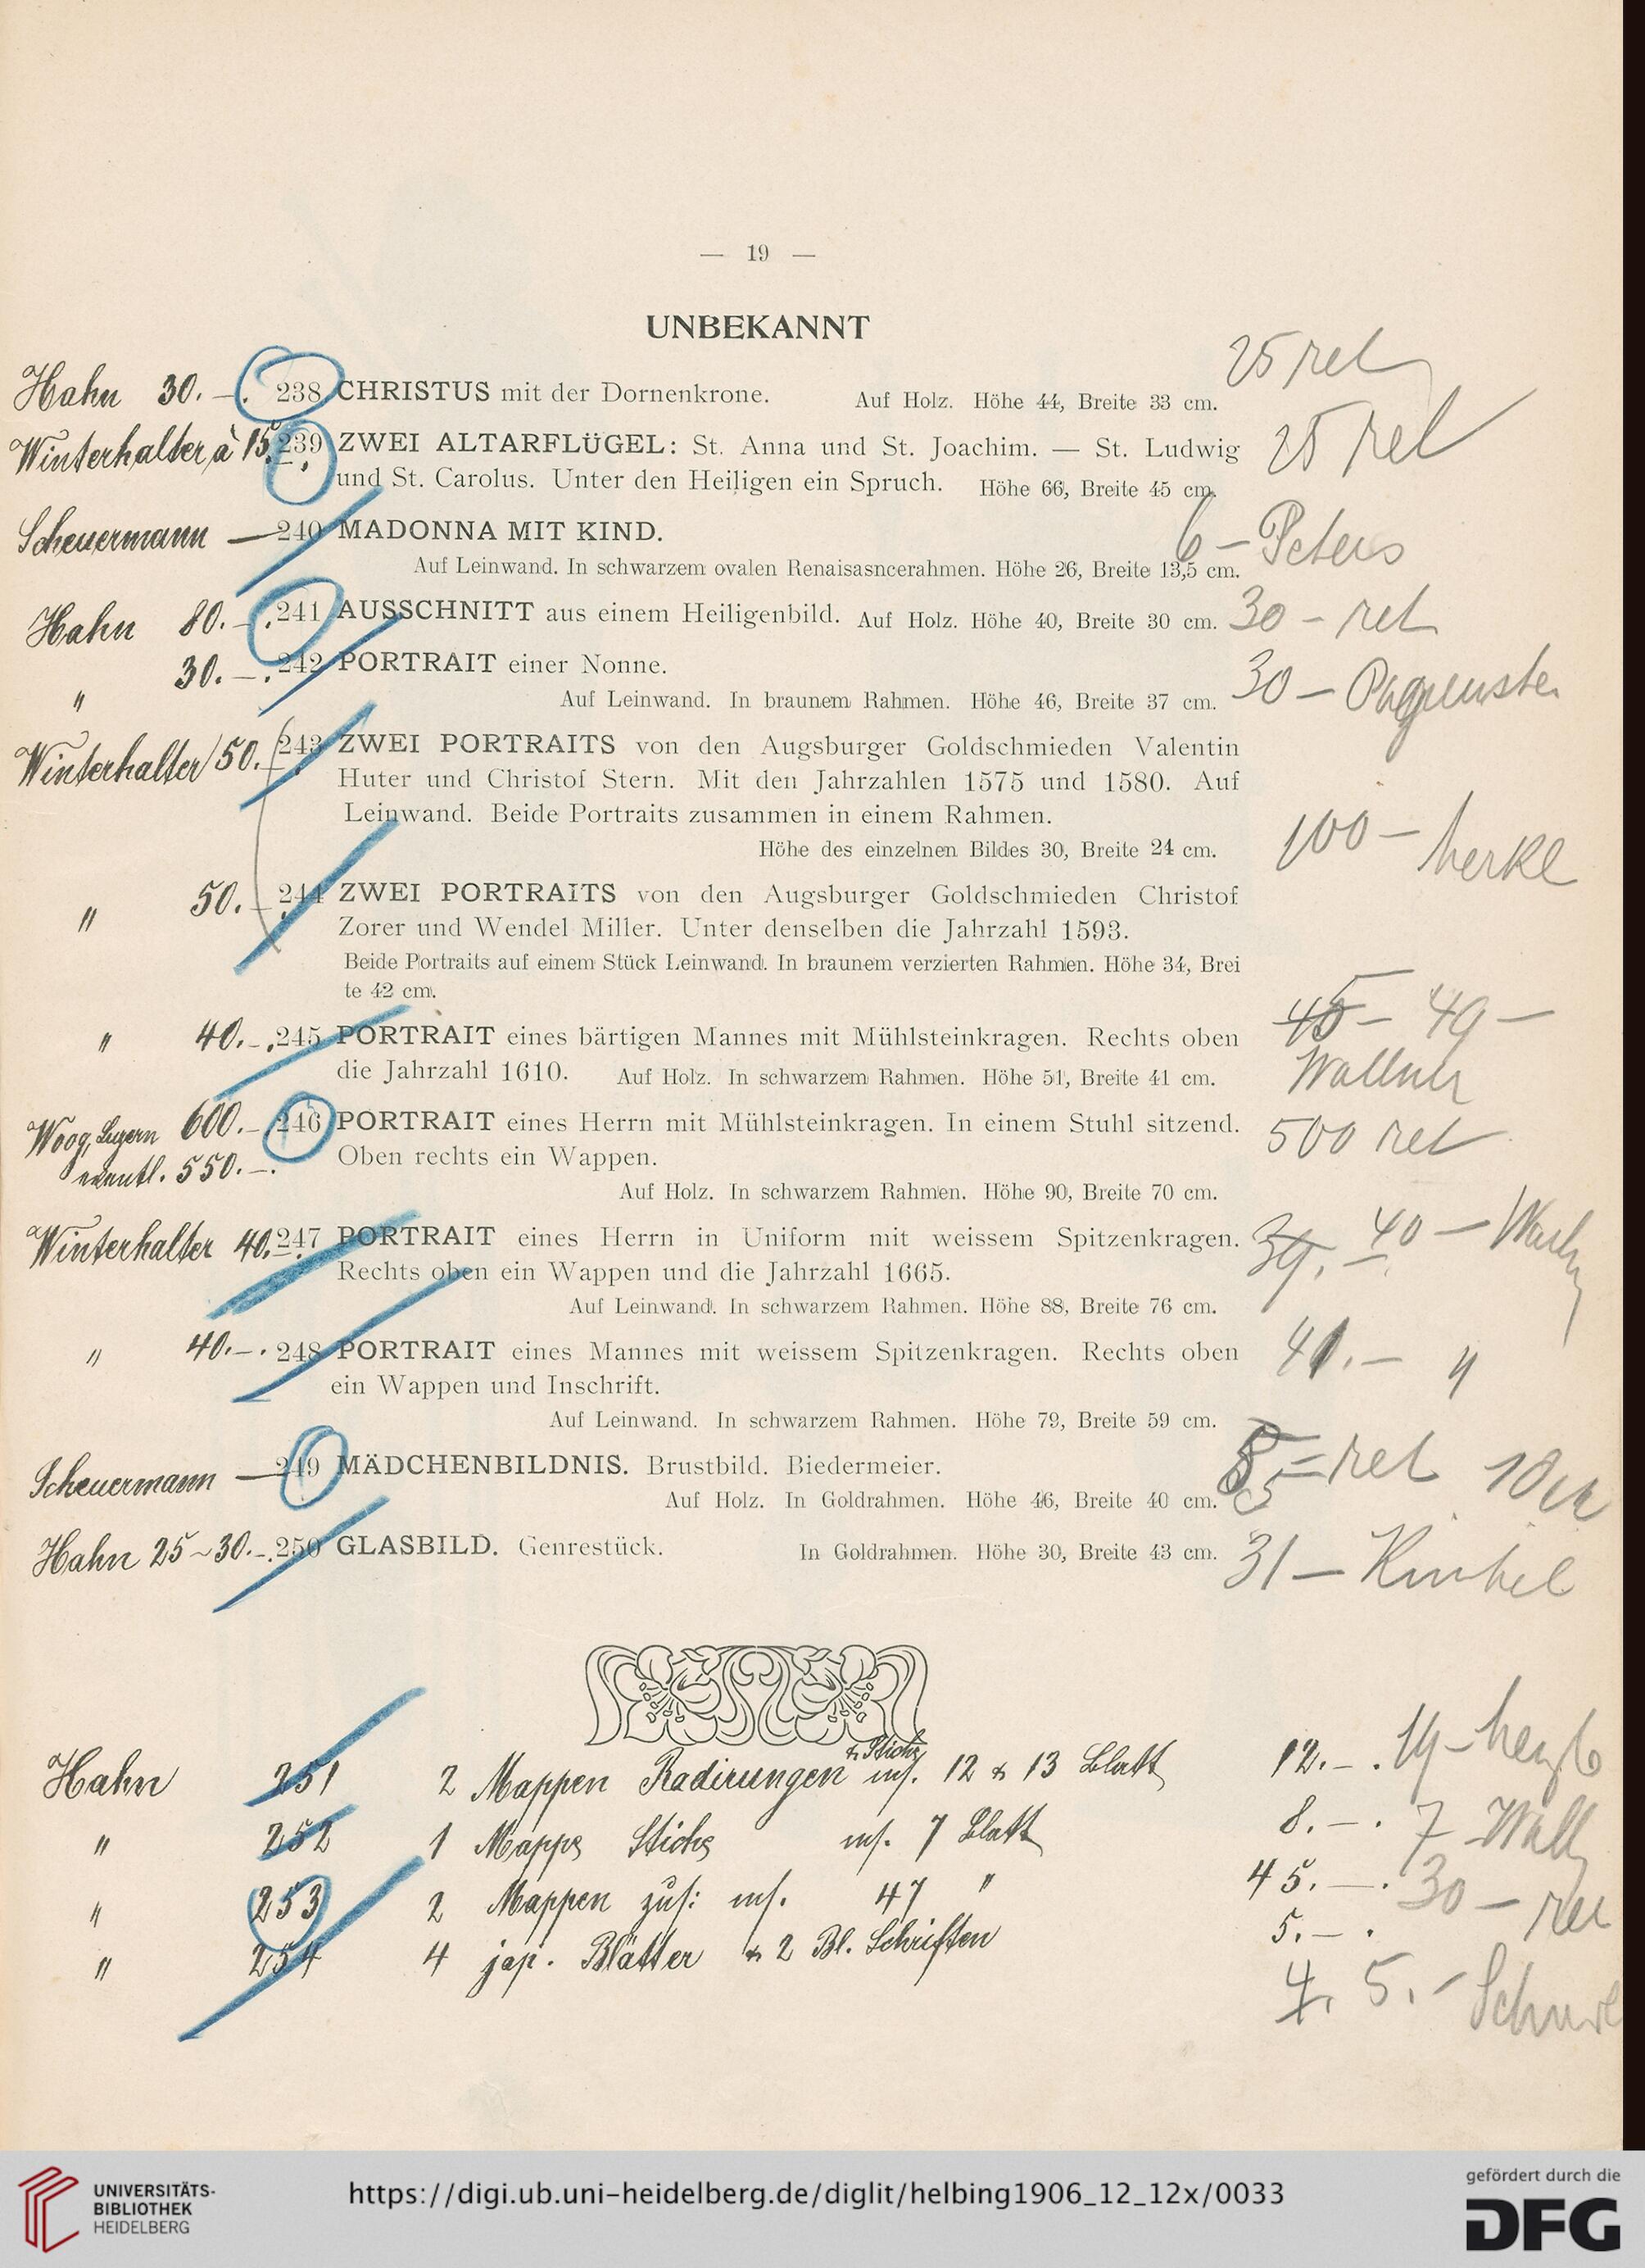 — 19 —
UNBEKANNT
25 ret
Hahn 30.–. 238 CHRISTUS mit der Dornenkrone. Auf Holz. Höhe 44, Breite 33 cm.
Winterhalter à 15.–. 239 ZWEI ALTARFLÜGEL: St. Anna und St. Joachim. — St. Ludwig 25 ret
und St. Carolus. Unter den Heiligen ein Spruch. Höhe 66, Breite 45 cm.
Scheuermann — 240 MADONNA MIT KIND. 6 – Peters
Auf Leinwand. In schwarzem ovalen Renaisasncerahmen. Höhe 26, Breite 13,5 cm.
Hahn 80.–. 241 AUSSCHNITT aus einem Heiligenbild. Auf Holz. Höhe 40, Breite 30 cm. 30 – ret
" 30.–. 242 PORTRAIT einer Nonne. 30 –
Auf Leinwand. In braunem Rahmen. Höhe 46, Breite 37 cm.
Winterhalter 50.–. 243 ZWEI PORTRAITS von den Augsburger Goldschmieden Valentin
Huter und Christof Stern. Mit den Jahrzahlen 1575 und 1580. Auf
Leinwand. Beide Portraits zusammen in einem Rahmen. 100 –
Höhe des einzelnen Bildes 30, Breite 24 cm.
" 50.–. 244 ZWEI PORTRAITS von den Augsburger Goldschmieden Christof
Zorer und Wendel Miller. Unter denselben die Jahrzahl 1593.
Beide Portraits auf einem Stück Leinwand. In braunem verzierten Rahmen. Höhe 34, Brei
te 42 cm.
" 40.–. 245 PORTRAIT eines bärtigen Mannes mit Mühlsteinkragen. Rechts oben
die Jahrzahl 1610. Auf Holz. In schwarzem Rahmen. Höhe 51, Breite 41 cm.
Woog, Luzern 600.– 246 PORTRAIT eines Herrn mit Mühlsteinkragen. In einem Stuhl sitzend. 500 ret
eventl. 550.–. Oben rechts ein Wappen.
Auf Holz. In schwarzem Rahmen. Höhe 90, Breite 70 cm.
Winterhalter 40.–. 247 PORTRAIT eines Herrn in Uniform mit weissem Spitzenkragen. 40 –
Rechts oben ein Wappen und die Jahrzahl 1665.
Auf Leinwand. In schwarzem Rahmen. Höhe 88, Breite 76 cm.
" 40.–. 248 PORTRAIT eines Mannes mit weissem Spitzenkragen. Rechts oben 41.– "
ein Wappen und Inschrift.
Auf Leinwand. In schwarzem Rahmen. Höhe 79, Breite 59 cm.
Scheuermann — 249 MÄDCHENBILDNIS. Brustbild. Biedermeier. ret
Auf Holz. In Goldrahmen. Höhe 46, Breite 40 cm.
Hahn 25–30.–. 250 GLASBILD. Genrestück. In Goldrahmen. Höhe 30, Breite 43 cm. 31 –
Hahn 251 2 Mappen Radirungen & Stiche m/. 12 & 13 Blatt 12.–.
" 252 1 Mappe Stiche m/. 7 Blatt 8.–. 7
" 253 2 Mappen zus: m/. 47 " 45.–. 30 –
" 254 4 jap. Blätter & 2 Bl. Schriften 5.–.
4. 5.–
UNIVERSITÄTS-
BIBLIOTHEK
HEIDELBERG
https://digi.ub.uni-heidelberg.de/diglit/helbing1906_12_12x/0033
gefördert durch die
DFG